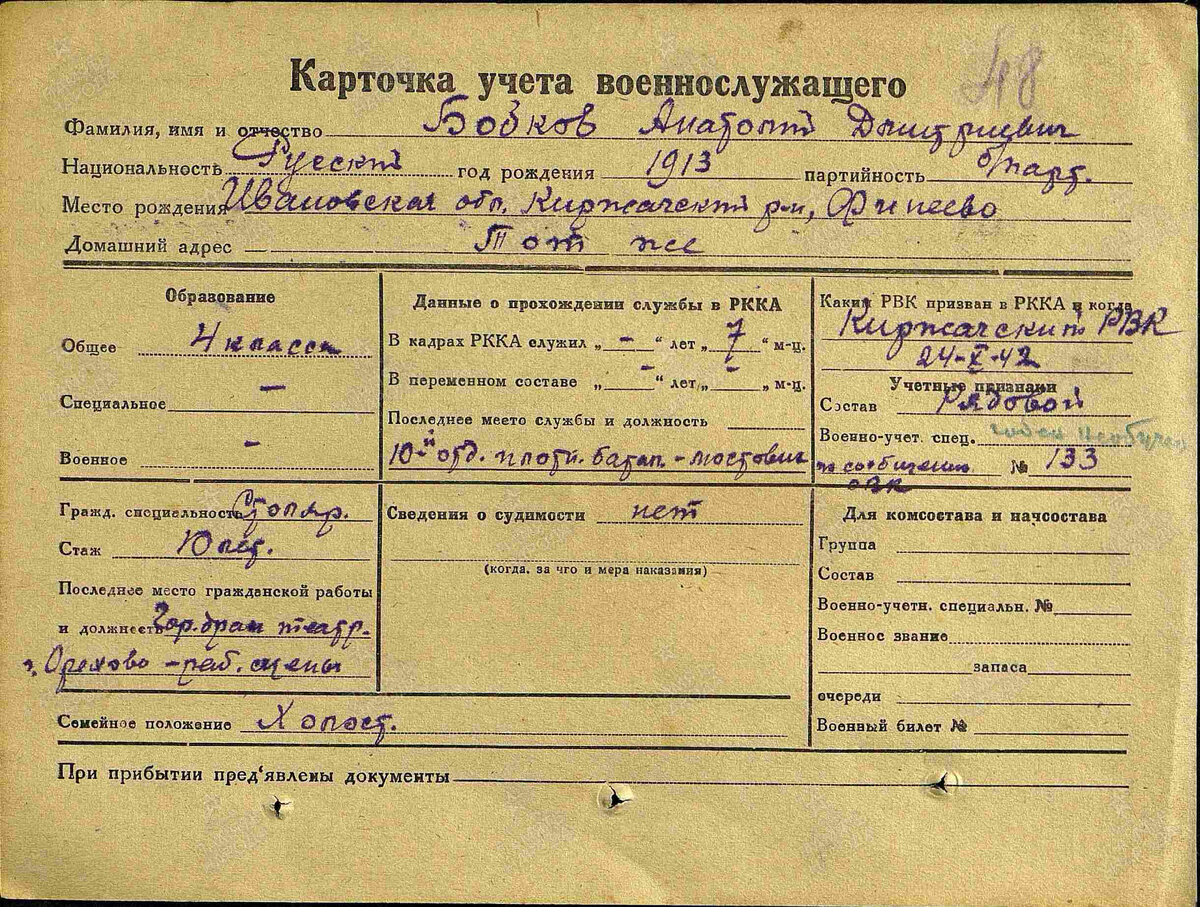 48
Карточка учета военнослужащего
Фамилия, имя и отчество Бобков Анатолий Дмитриевич
Национальность Русский год рождения 1913 партийность б/парт.
Место рождения Ивановская обл. Киржачский р-н, Финеево
Домашний адрес Тот же
Образование
Общее 4 класса
Специальное —
Военное —
Данные о прохождении службы в РККА
В кадрах РККА служил „ – “ лет „ 7 “ м-ц.
В переменном составе „ – “ лет „ – „ м-ц.
Последнее место службы и должность
10-й отд. плотн. батал. - мостовик
Каким РВК призван в РККА и когда
Киржачский РВК
24-X-42
Учетные признаки
Состав Рядовой
Военно-учет. спец. годен необучен
по сообщению № 133
ОВК
Гражд. специальность Столяр.
Стаж 10 лет.
Последнее место гражданской работы
и должность Гор. драм театр.
г. Орехово - раб. сцены
Сведения о судимости нет
(когда, за что и мера наказания)
Для комсостава и начсостава
Группа
Состав
Военно-учетн. специальн. №
Военное звание
запаса
очереди
Военный билет №
Семейное положение Холост.
При прибытии пред'явлены документы